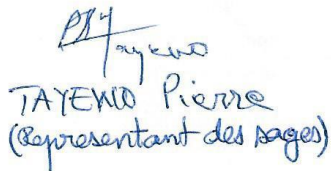 TAYEWO Pierre
(Representant des sages)